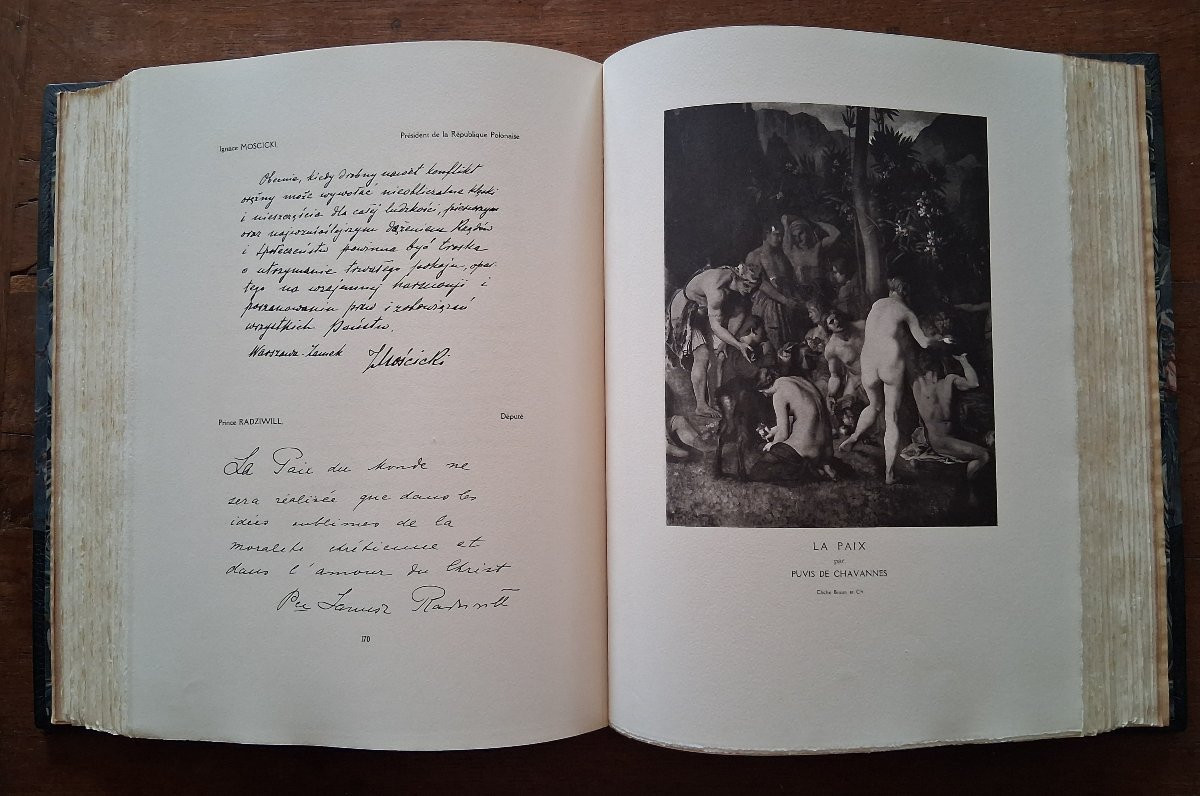 Ignace MOSCICKI,
Président de la République Polonaise
Obecnie, kiedy drobny nawet konflikt
orężny może wywołać nieobliczalne klęski
i nieszczęścia dla całej ludzkości, pierwszym
oraz najważniejszym dążeniem Rządów
i społeczeństw powinna być troska
o utrzymanie trwałego pokoju, opar-
tego na wzajemnej harmonji i
poszanowaniu praw i zobowiązań
wszystkich Państw.
Warszawa - Zamek
IMościcki
Prince RADZIWILL,
Député
La Paix du monde ne
sera réalisée que dans les
idées sublimes de la
moralité chrétienne et
dans l'amour du Christ
Janusz Radziwill
170
LA PAIX
par
PUVIS DE CHAVANNES
Cliché Braun et Cie